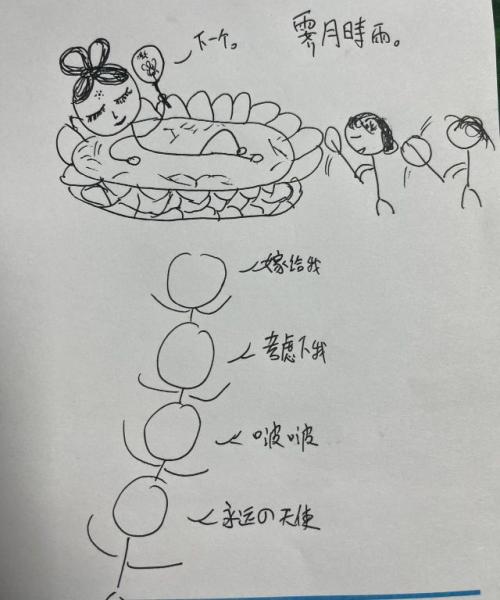 霁月時雨。
下一个。
嫁给我
考虑下我
啵啵
永远の天使